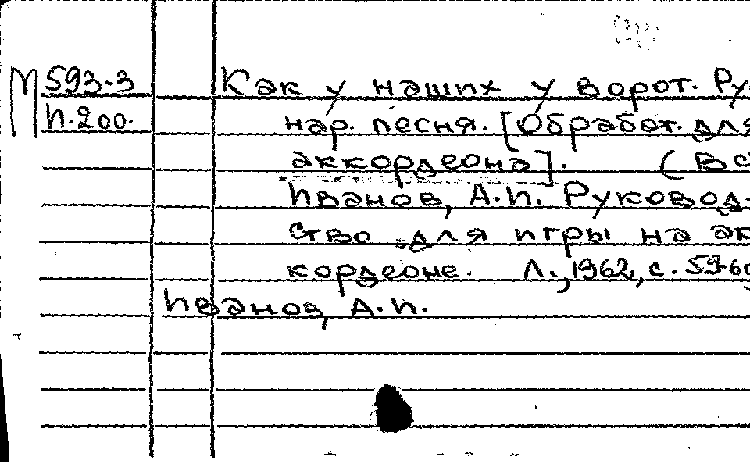 М 593-3
И.200.
Как у наших у ворот. Ру
нар. песня. [Обработ. для
аккордеона]. (В с
Иванов, А.И. Руковод-
ство для игры на ак
кордеоне. Л., 1962, с. 59-60
Иванов, А.И.